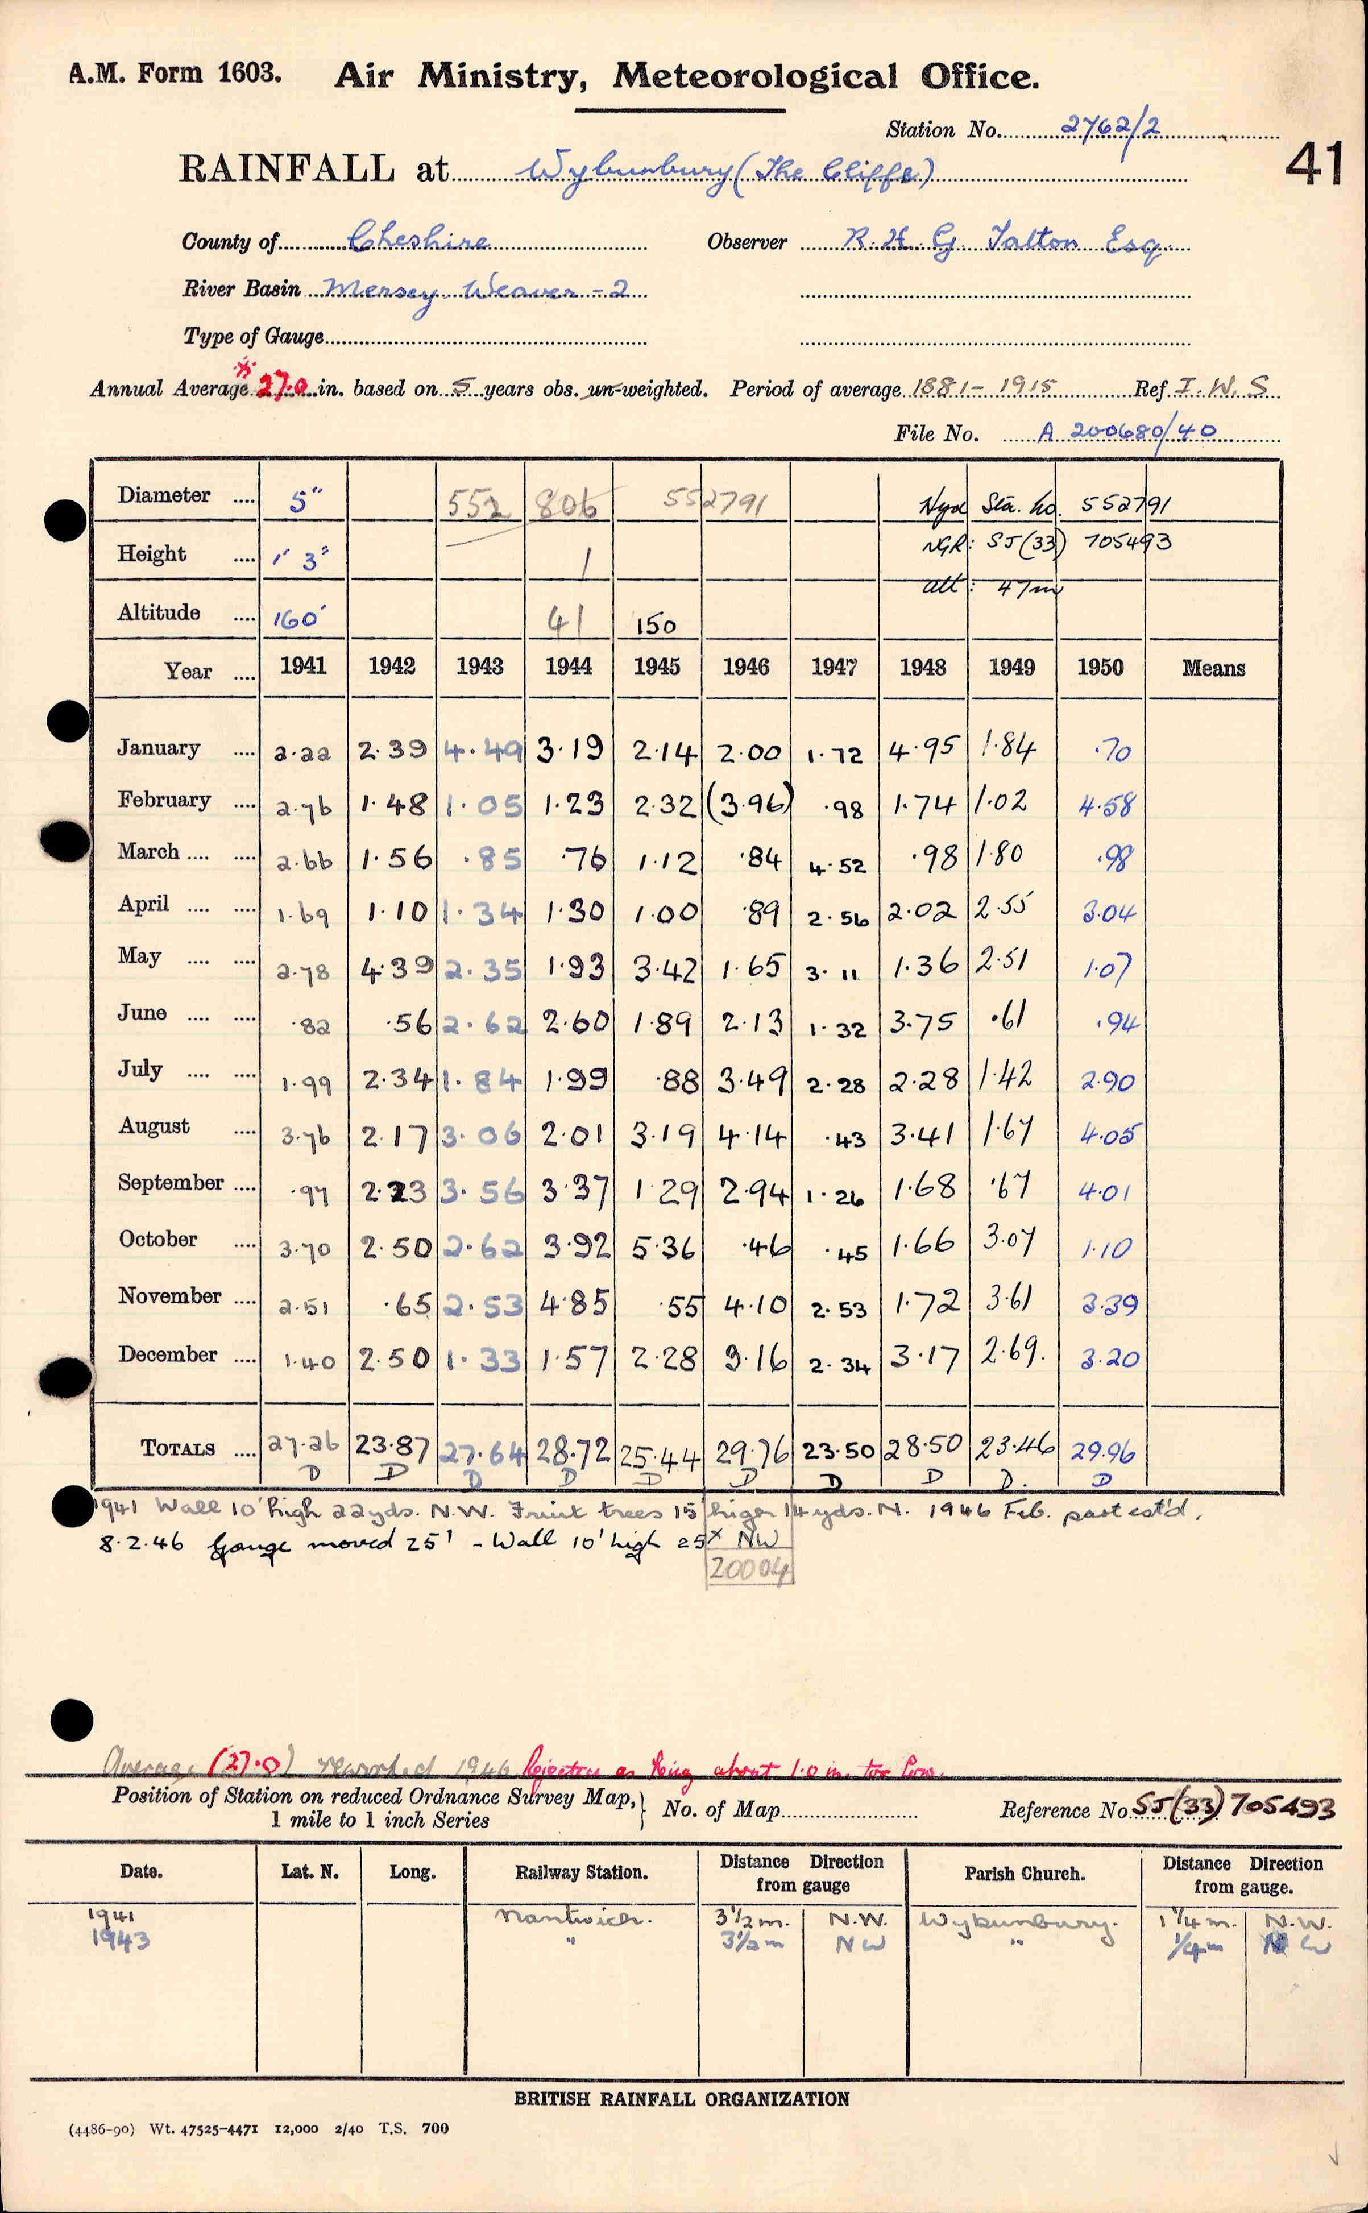 A.M. Form 1603. Air Ministry, Meteorological Office.
Station No. 2762/2
41
RAINFALL at Wybunbury (The Cliffe)
County of Cheshire Observer R. H. G Talton Esq
River Basin Mersey Weaver - 2
Type of Gauge
Annual Average * 27.0 in. based on 5 years obs. un-weighted. Period of average 1881 - 1915 Ref. I. W. S
File No. A 200680/40
Diameter .... 5" 552 806 552791 Hyd Sta. no. 552791
Height .... 1' 3" 1 NGR: SJ(33) 705493
alt: 47m
Altitude .... 160' 41 150
Year .... 1941 1942 1943 1944 1945 1946 1947 1948 1949 1950 Means
January .... 2.22 2.39 4.49 3.19 2.14 2.00 1.72 4.95 1.84 .70
February .... 2.76 1.48 1.05 1.23 2.32 (3.96) .98 1.74 1.02 4.58
March .... .... 2.66 1.56 .85 .76 1.12 .84 4.52 .98 1.80 .98
April .... .... 1.69 1.10 1.34 1.30 1.00 .89 2.56 2.02 2.55 3.04
May .... .... 2.78 4.39 2.35 1.93 3.42 1.65 3.11 1.36 2.51 1.07
June .... .... .82 .56 2.62 2.60 1.89 2.13 1.32 3.75 .61 .94
July .... .... 1.99 2.34 1.84 1.99 .88 3.49 2.28 2.28 1.42 2.90
August .... 3.76 2.17 3.06 2.01 3.19 4.14 .43 3.41 1.67 4.05
September .... .97 2.23 3.56 3.37 1.29 2.94 1.26 1.68 .67 4.01
October .... 3.70 2.50 2.62 3.92 5.36 .46 .45 1.66 3.07 1.10
November .... 2.51 .65 2.53 4.85 .55 4.10 2.53 1.72 3.61 3.39
December .... 1.40 2.50 1.33 1.57 2.28 3.16 2.34 3.17 2.69. 3.20
TOTALS .... 27.26 23.87 27.64 28.72 25.44 29.76 23.50 28.50 23.46 29.96
D D D D D D D D D. D
1941 Wall 10' high 22yds. N.W. Fruit trees 15' high 14yds. N. 1946 Feb. part est'd.
8.2.46 Gauge moved 25' - Wall 10' high 25x NW
20004
Average (27.0) 1946 Rejected as being about 1.0 in. too low.
Position of Station on reduced Ordnance Survey Map, } No. of Map Reference No. SJ(33) 705493
1 mile to 1 inch Series
Date. Lat. N. Long. Railway Station. Distance Direction from gauge Parish Church. Distance Direction from gauge.
1941 Nantwich. 3½m. N.W. Wybunbury. 1¼m. N.W.
1943 " 3½m NW " ¼m NW
BRITISH RAINFALL ORGANIZATION
(4486-90) Wt. 47525-4471 12,000 2/40 T.S. 700